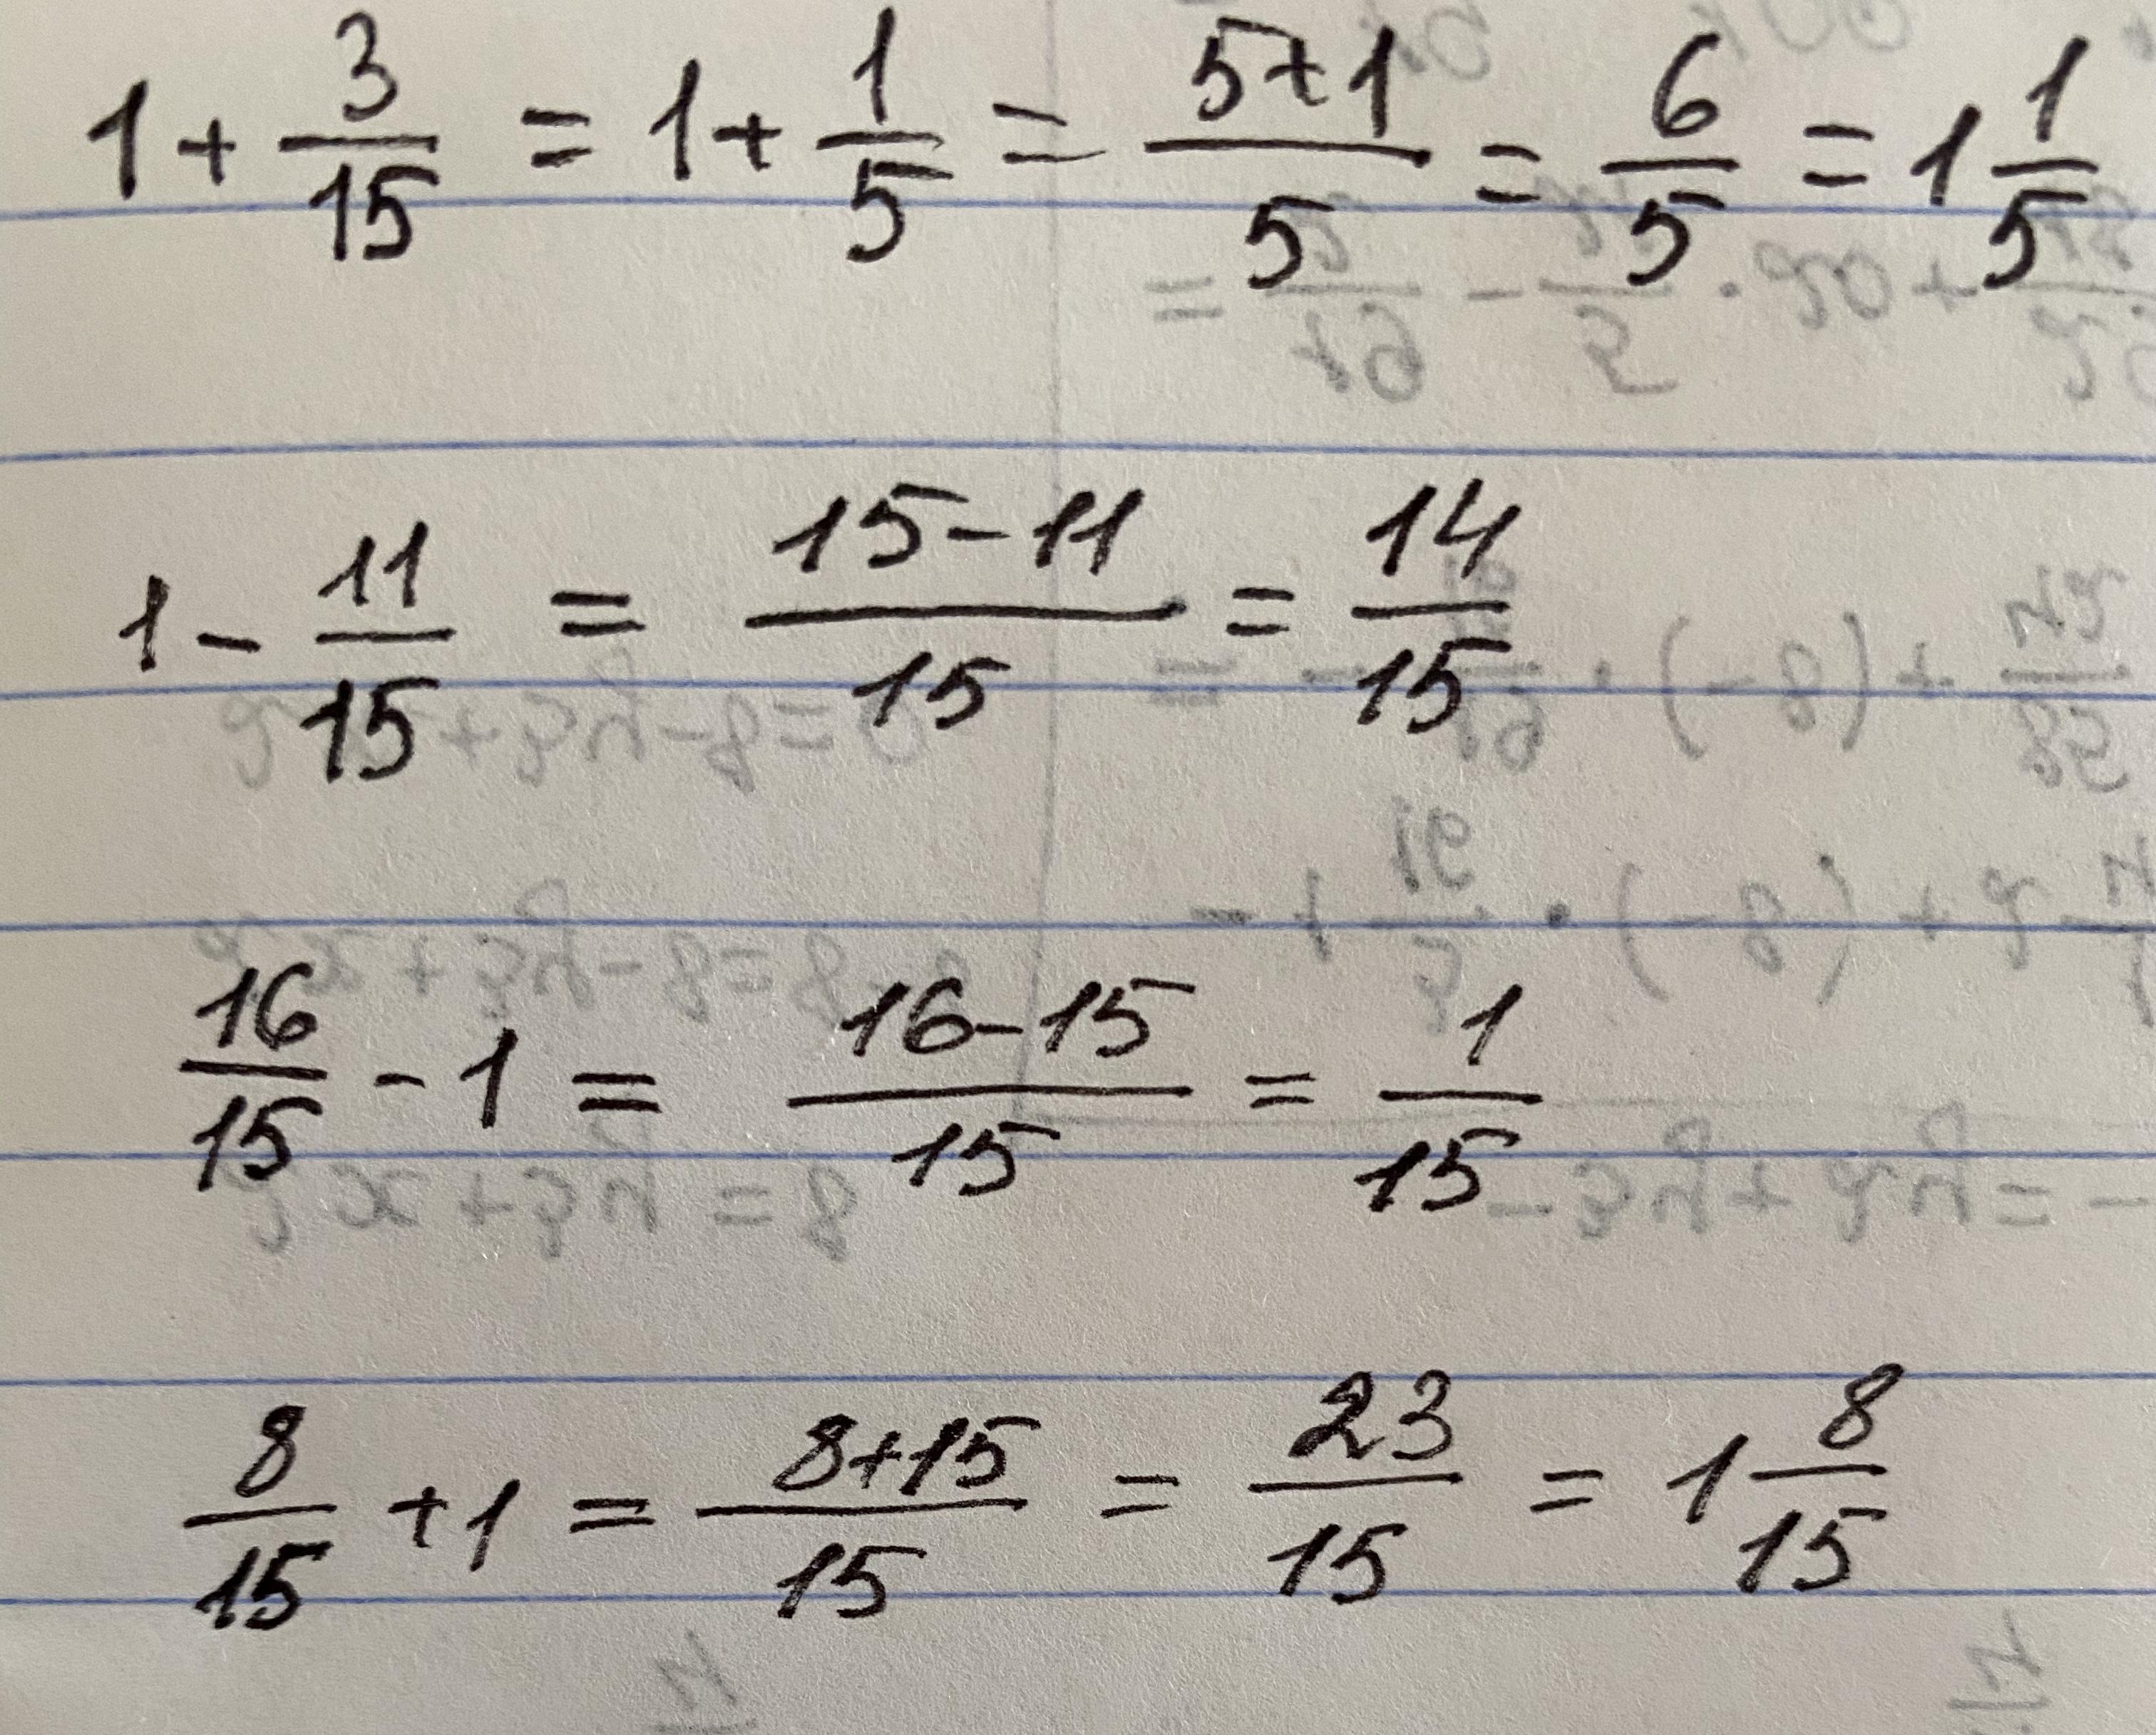 1 + 3/15 = 1 + 1/5 = (5+1)/5 = 6/5 = 1 1/5
1 - 11/15 = (15-11)/15 = 14/15
16/15 - 1 = (16-15)/15 = 1/15
8/15 + 1 = (8+15)/15 = 23/15 = 1 8/15